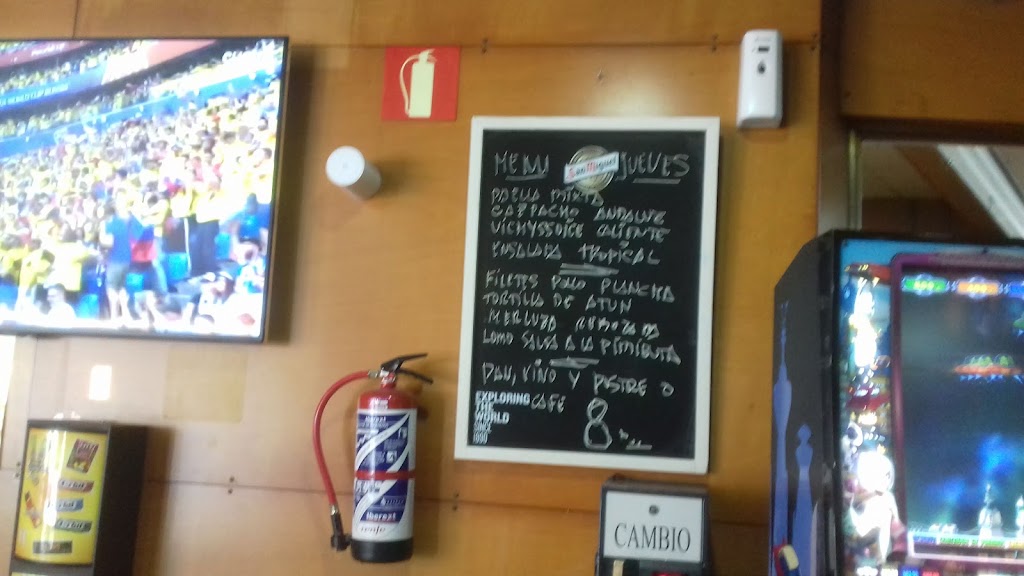 MENU San Miguel JUEVES
PAELLA MIXTA
GAZPACHO ANDALUZ
VICHYSSOISE CALIENTE
ENSALADA TROPICAL
FILETES POLLO PLANCHA
TORTILLA DE ATUN
MERLUZA REBOZADA
LOMO SALSA A LA PIMIENTA
PAN, VINO Y POSTRE O
CAFE
8
EXPLORING
THE
WORLD
SINCE
1890
CAMBIO